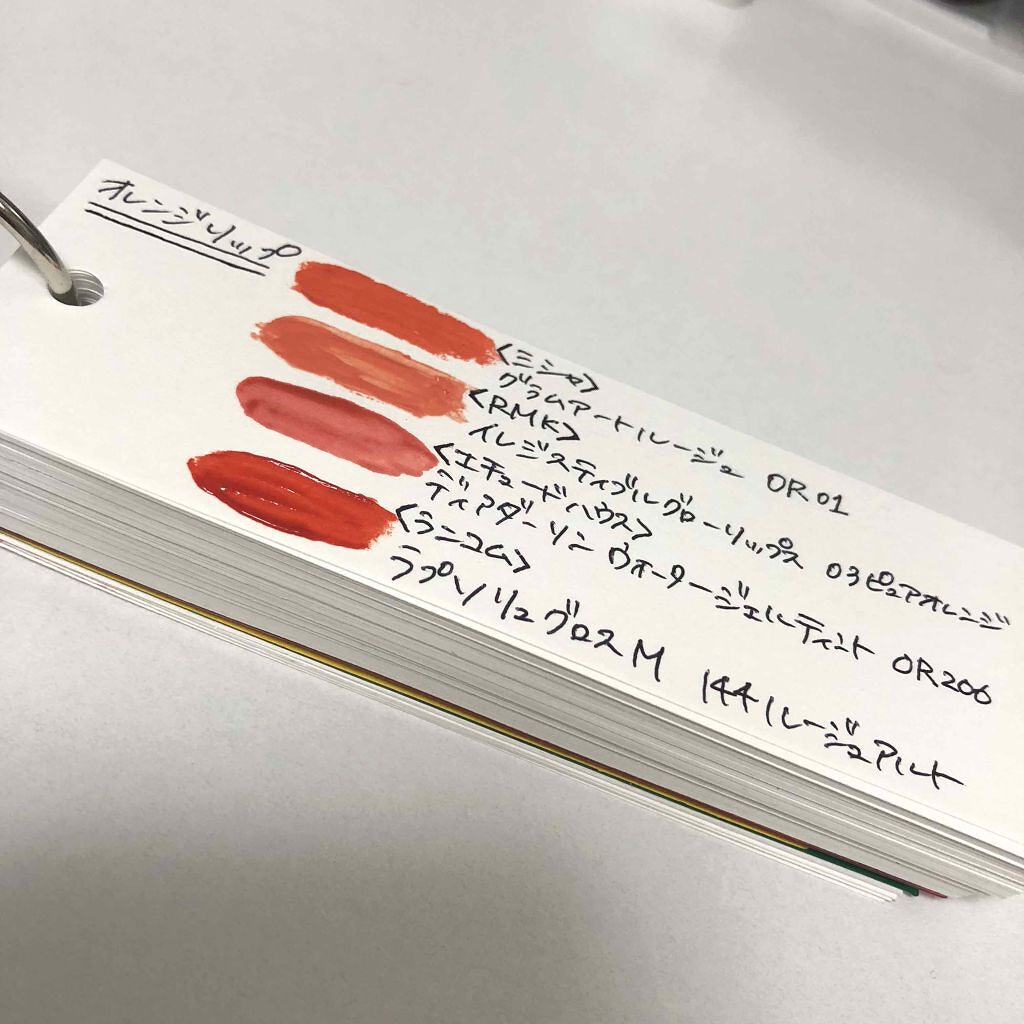 オレンジリップ
<ミシャ>
グラムアートルージュ OR01
<RMK>
イレジスティブルグローリップス 03ピュアオレンジ
<エチュードハウス>
ディアダーリン ウォータージェルティント OR206
<ランコム>
ラプソリュグロスM 144ルージュアルト